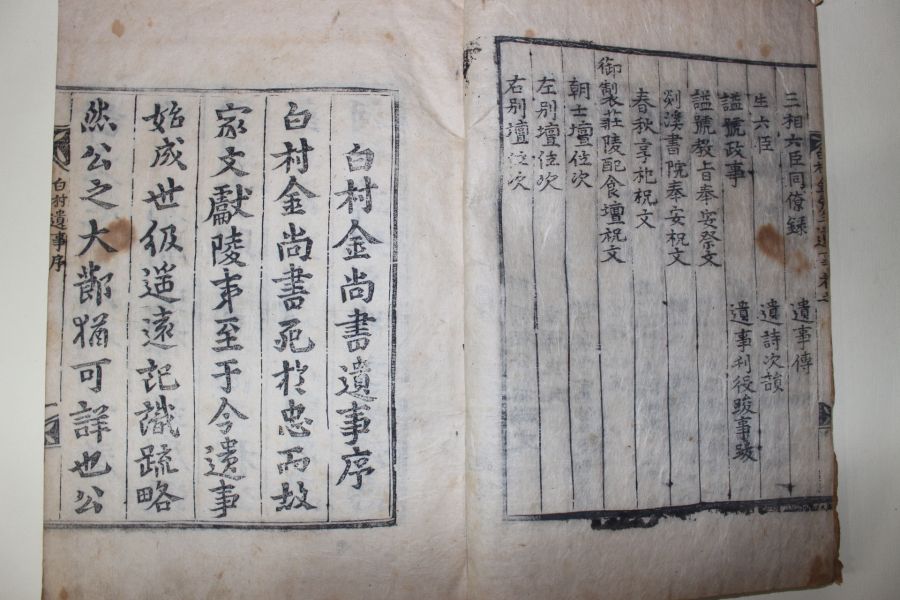 三相六臣同僚錄 遺事傳
生六臣 遺詩次韻
諡號政事 遺事刋役跋事跋
諡號教旨奉安祭文
剡溪書院奉安祝文
春秋享祀祝文
御製莊陵配食壇祝文
朝士壇位次
左別壇位次
右別壇位次
白村金尚書遺事序
白村金尚書死於忠而故
家文獻陵夷至于今遺事
始成世級遥遠記識疏略
然公之大節猶可詳也公
白村遺事序